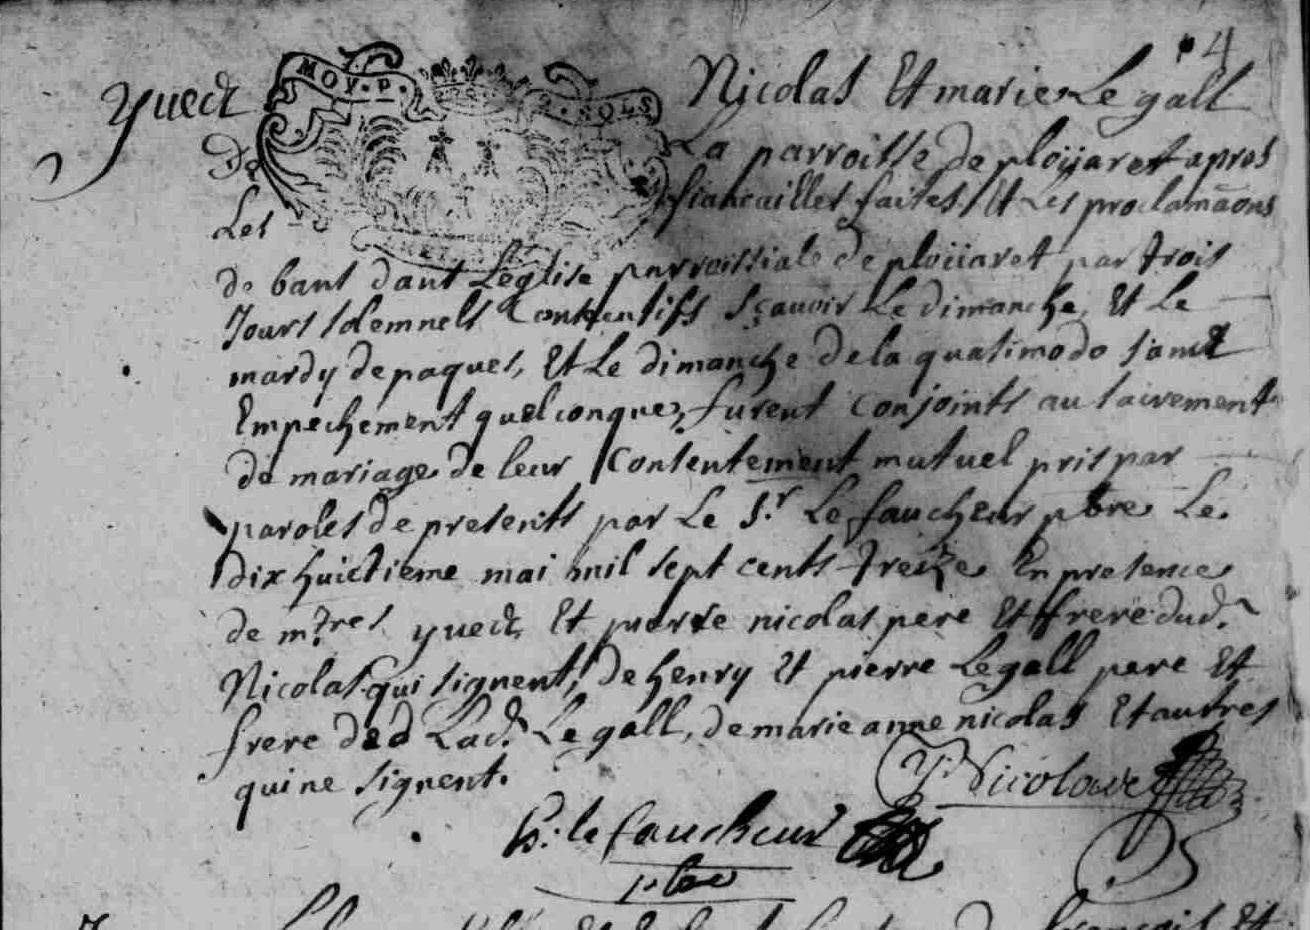 4
MOY. P. 2. SOLS
yuect Nicolas Et marie Le gall
De La parroisse de ploüaret apres
Les fiancailles faites Et Les proclamãons
de bans dans Leglise parroissiale de ploüaret par trois
Jours solemnels Consecutifs Sçavoir Le dimanche, Et Le
mardy de paques, Et Le dimanche de la quasimodo sans
Empechement quelconque, furent conjoints au sacrement
de mariage de leur Consentement mutuel pris par
paroles de presents par Le S.r Le faucheur pbre Le
dix huictieme mai mil sept cents treize En presence
de m.tres yuect Et pierre nicolas pere Et frere dud.
Nicolas qui signent, de henry Et pierre Le gall pere Et
frere de Lad. Le gall, de marie anne nicolas Et autres
qui ne signent.
Y: Nicolas
h: le faucheur
pbre